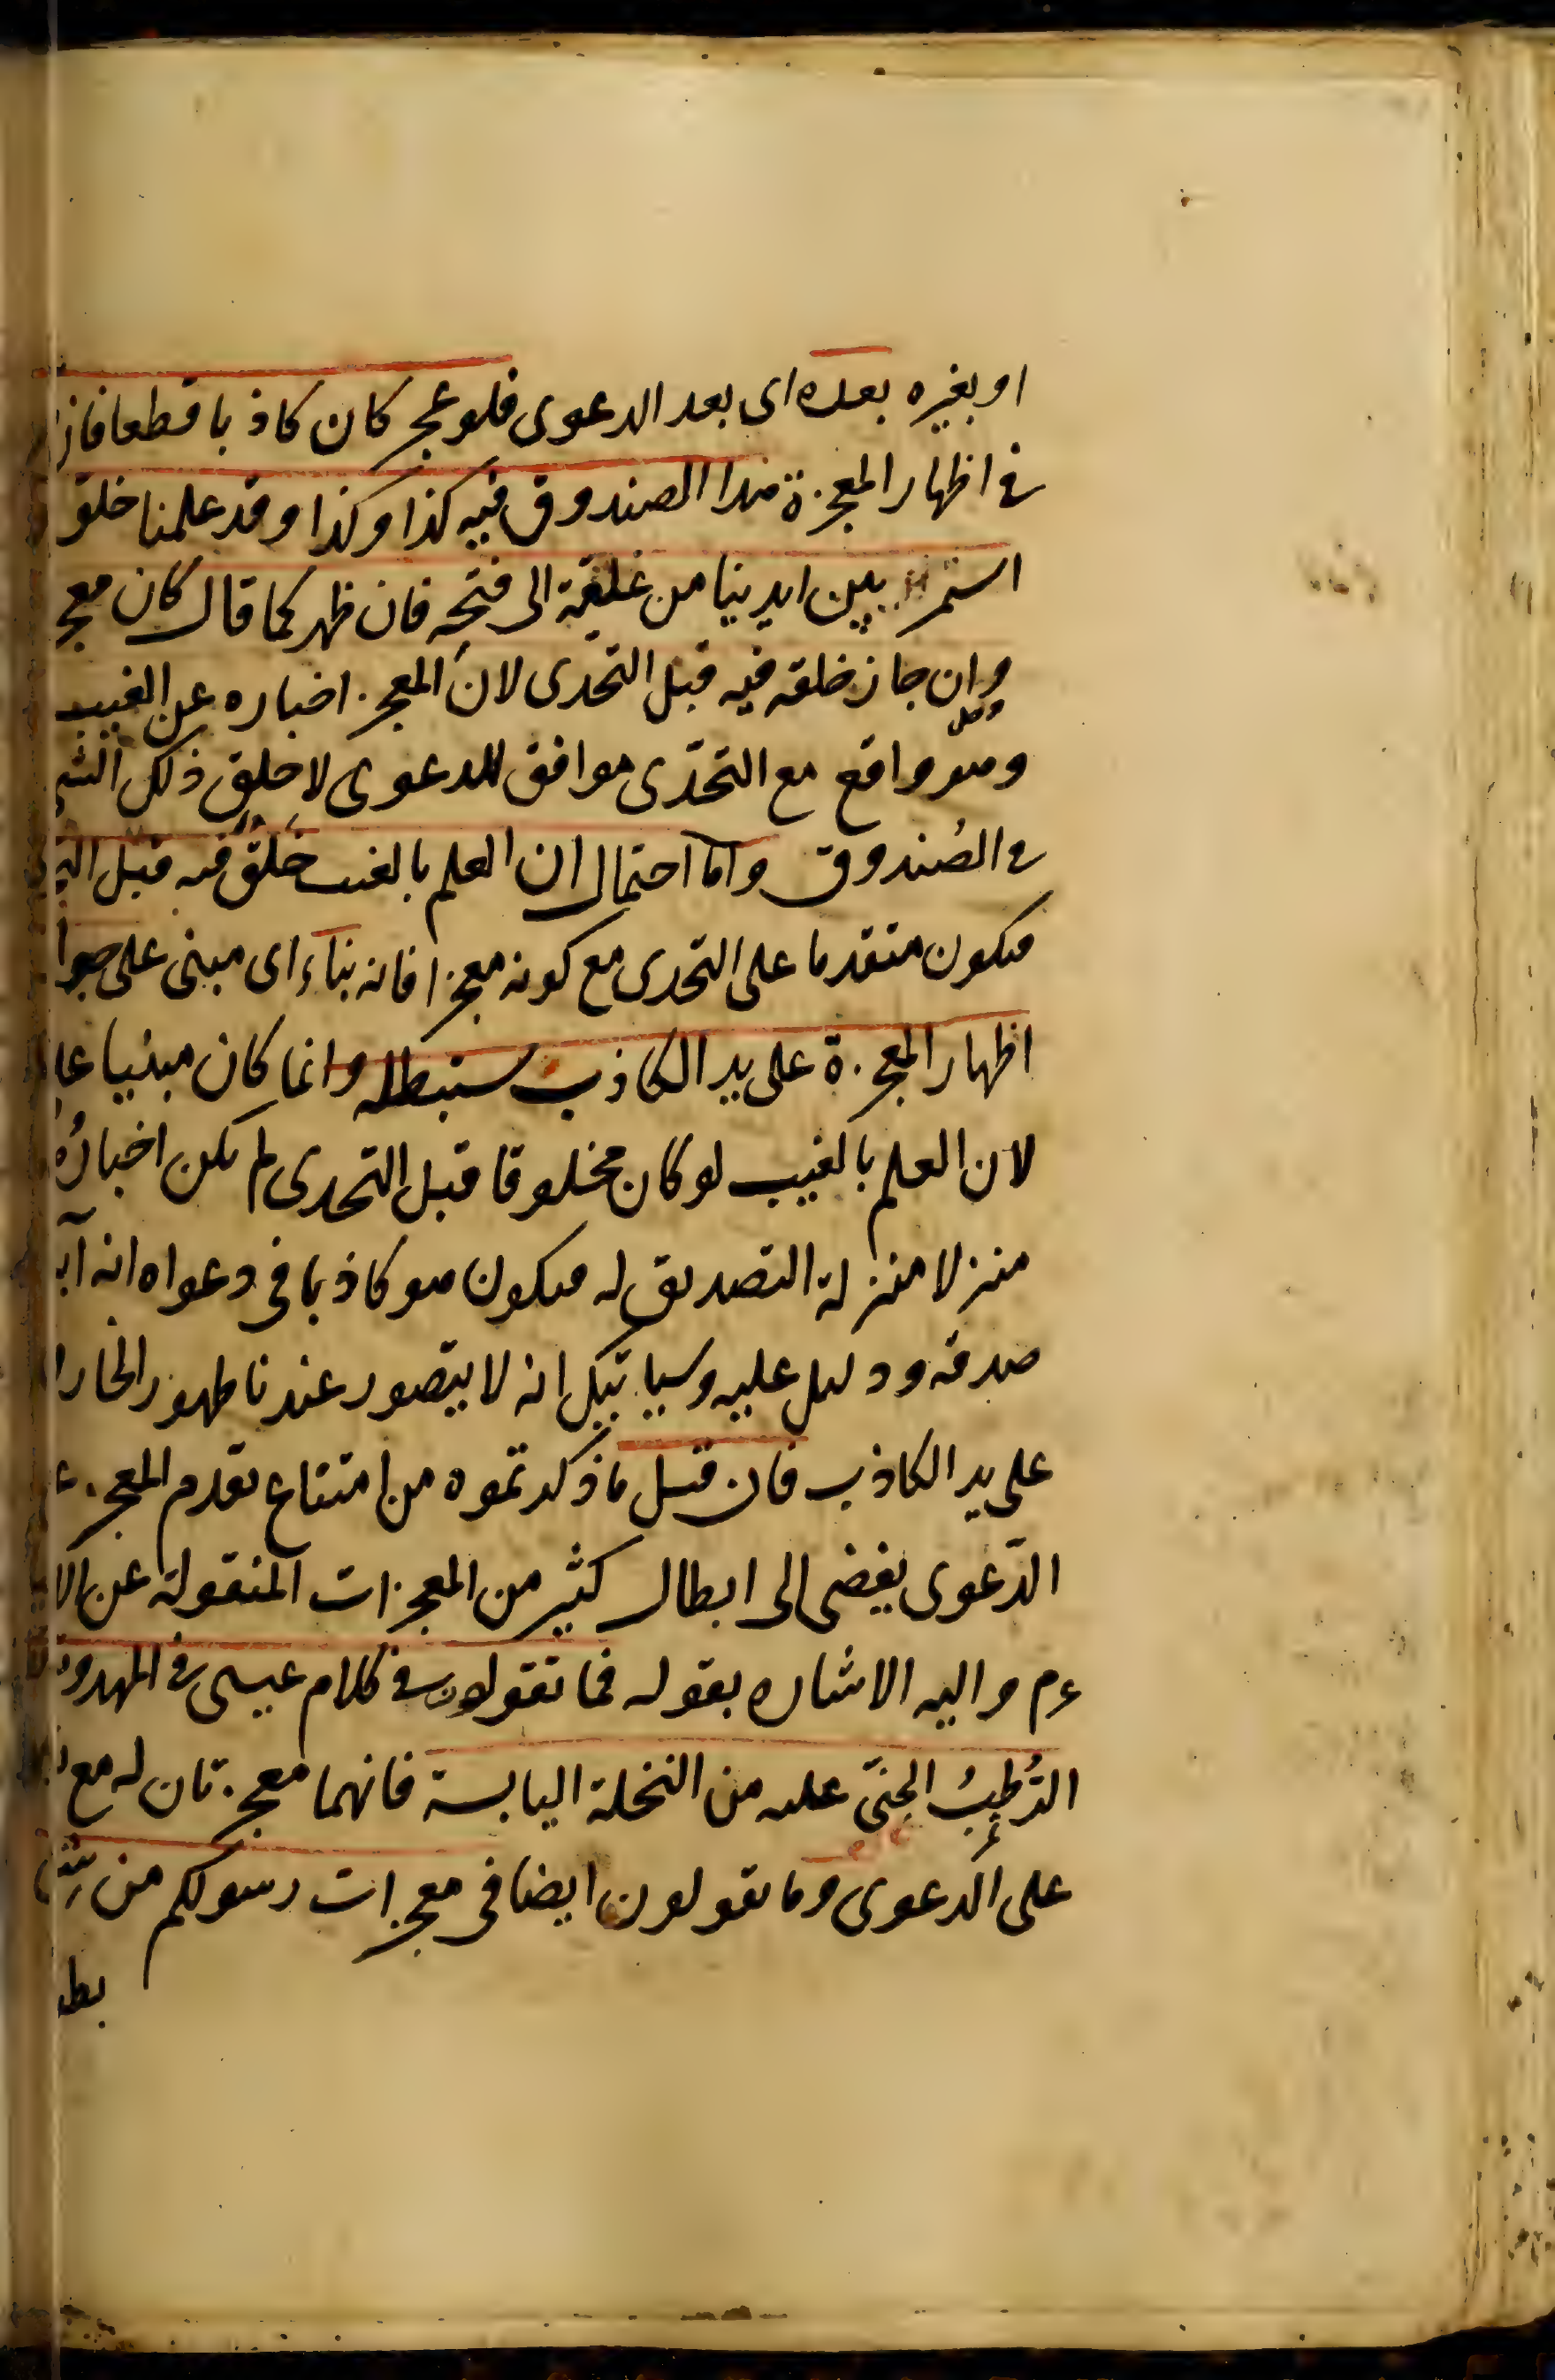 او بغيره بعده اى بعد الدعوى فلو عجز كان كاذبا قطعا فاذ
فى اظهار المعجزة هذا الصندوق فيه كذا وكذا وقد علمنا خلو
استمر بين ايدينا من غلقه الى فتحه فان ظهر كما قال كان معج
وان جاز خلقه فيه قبل التحدى لان المعجز اخباره عن الغيب
وهو واقع مع التحدّى موافق للدعوى لا خلق ذلك الشى
فى الصُندوق واما احتمال ان العلم بالغيب خلق فيه قبل التحد
فيكون متقدما على التحدى مع كونه معجزا فانه بناء اى مبنى على جوا
اظهار المعجزة على يد الكاذب سنبطله وانما كان مبنيا عل
لان العلم بالغيب لو كان مخلوقا قبل التحدى لم يكن اخبارُهُ
منزلا منزلة التصديق له فيكون هو كاذبا فى دعواه انه آي
صدقه ودليل عليه وسياتيك انه لا يتصور عندنا ظهور الخار
على يد الكاذب فان قيل ما ذكرتموه من امتناع تقدم المعجز ع
الدّعوى يفضى الى ابطال كثير من المعجزات المنقولة عن الا
ءم واليه الاشاره بقوله فما تقولون فى كلام عيسى فى المهد و
الرُطبُ الجنىّ عليه من النخلة اليابسة فانهما معجزتان له مع
على الدعوى وما تقولون ايضا فى معجزات رسولكم من شق
بط